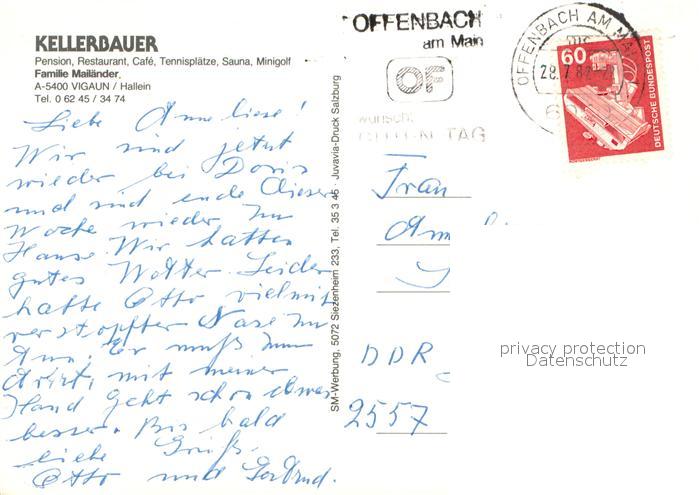 KELLERBAUER
Pension, Restaurant, Café, Tennisplätze, Sauna, Minigolf
Familie Mailänder,
A-5400 VIGAUN / Hallein
Tel. 0 62 45 / 34 74
Liebe Anneliese!
Wir sind jetzt
wieder bei Doris
und sind ende dieser
Woche wieder zu
Hause. Wir hatten
gutes Wetter. Leider
hatte Otto viel mit
verstopfter Nase zu
tun. Er muß zum
Arzt, mit meiner
Hand geht schon etwas
besser. Bis bald
liebe Grüße
Otto und Gertrud.
SM-Werbung, 5072 Siezenheim 233, Tel. 35 3 45 Juvavia-Druck Salzburg
OFFENBACH
am Main
OF
wünscht
GUTEN TAG
OFFENBACH AM MAIN
28.7.82
60
DEUTSCHE BUNDESPOST
Frau
DDR
2557
privacy protection
Datenschutz